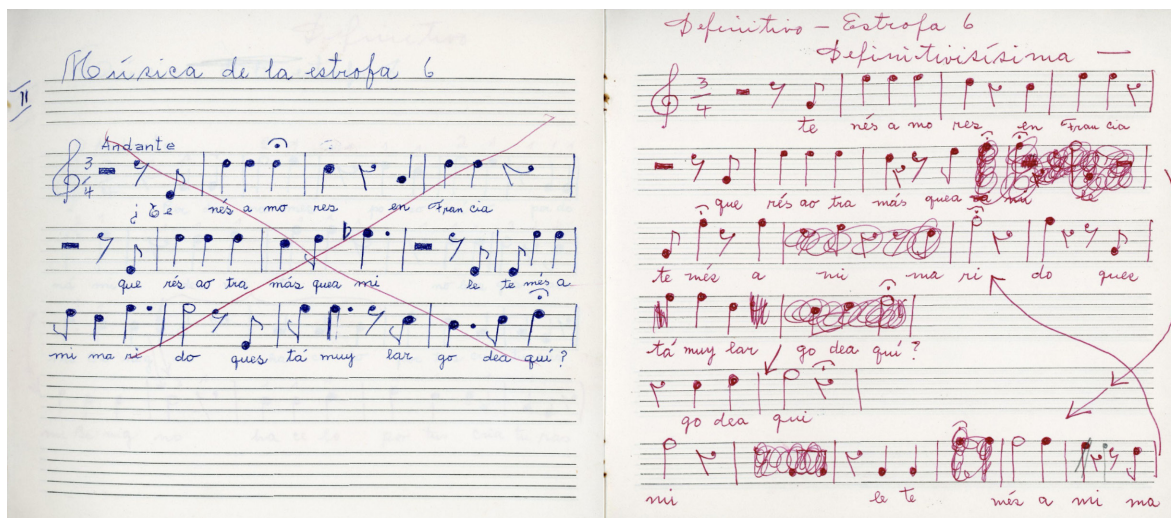 Música de la estrofa 6
II
Andante
3/4
¿Te nés a mo res en Fran cia
que rés ao tra más quea mi le te més a
mi ma ri do ques tá muy lar go dea quí?
Definitivo — Estrofa 6
Definitivisísima —
3/4
te nés a mo res en Fran cia
que rés ao tra más quea mi le
te més a mi ma ri do ques
tá muy lar go dea quí?
go dea qui
mi le te més a mi ma